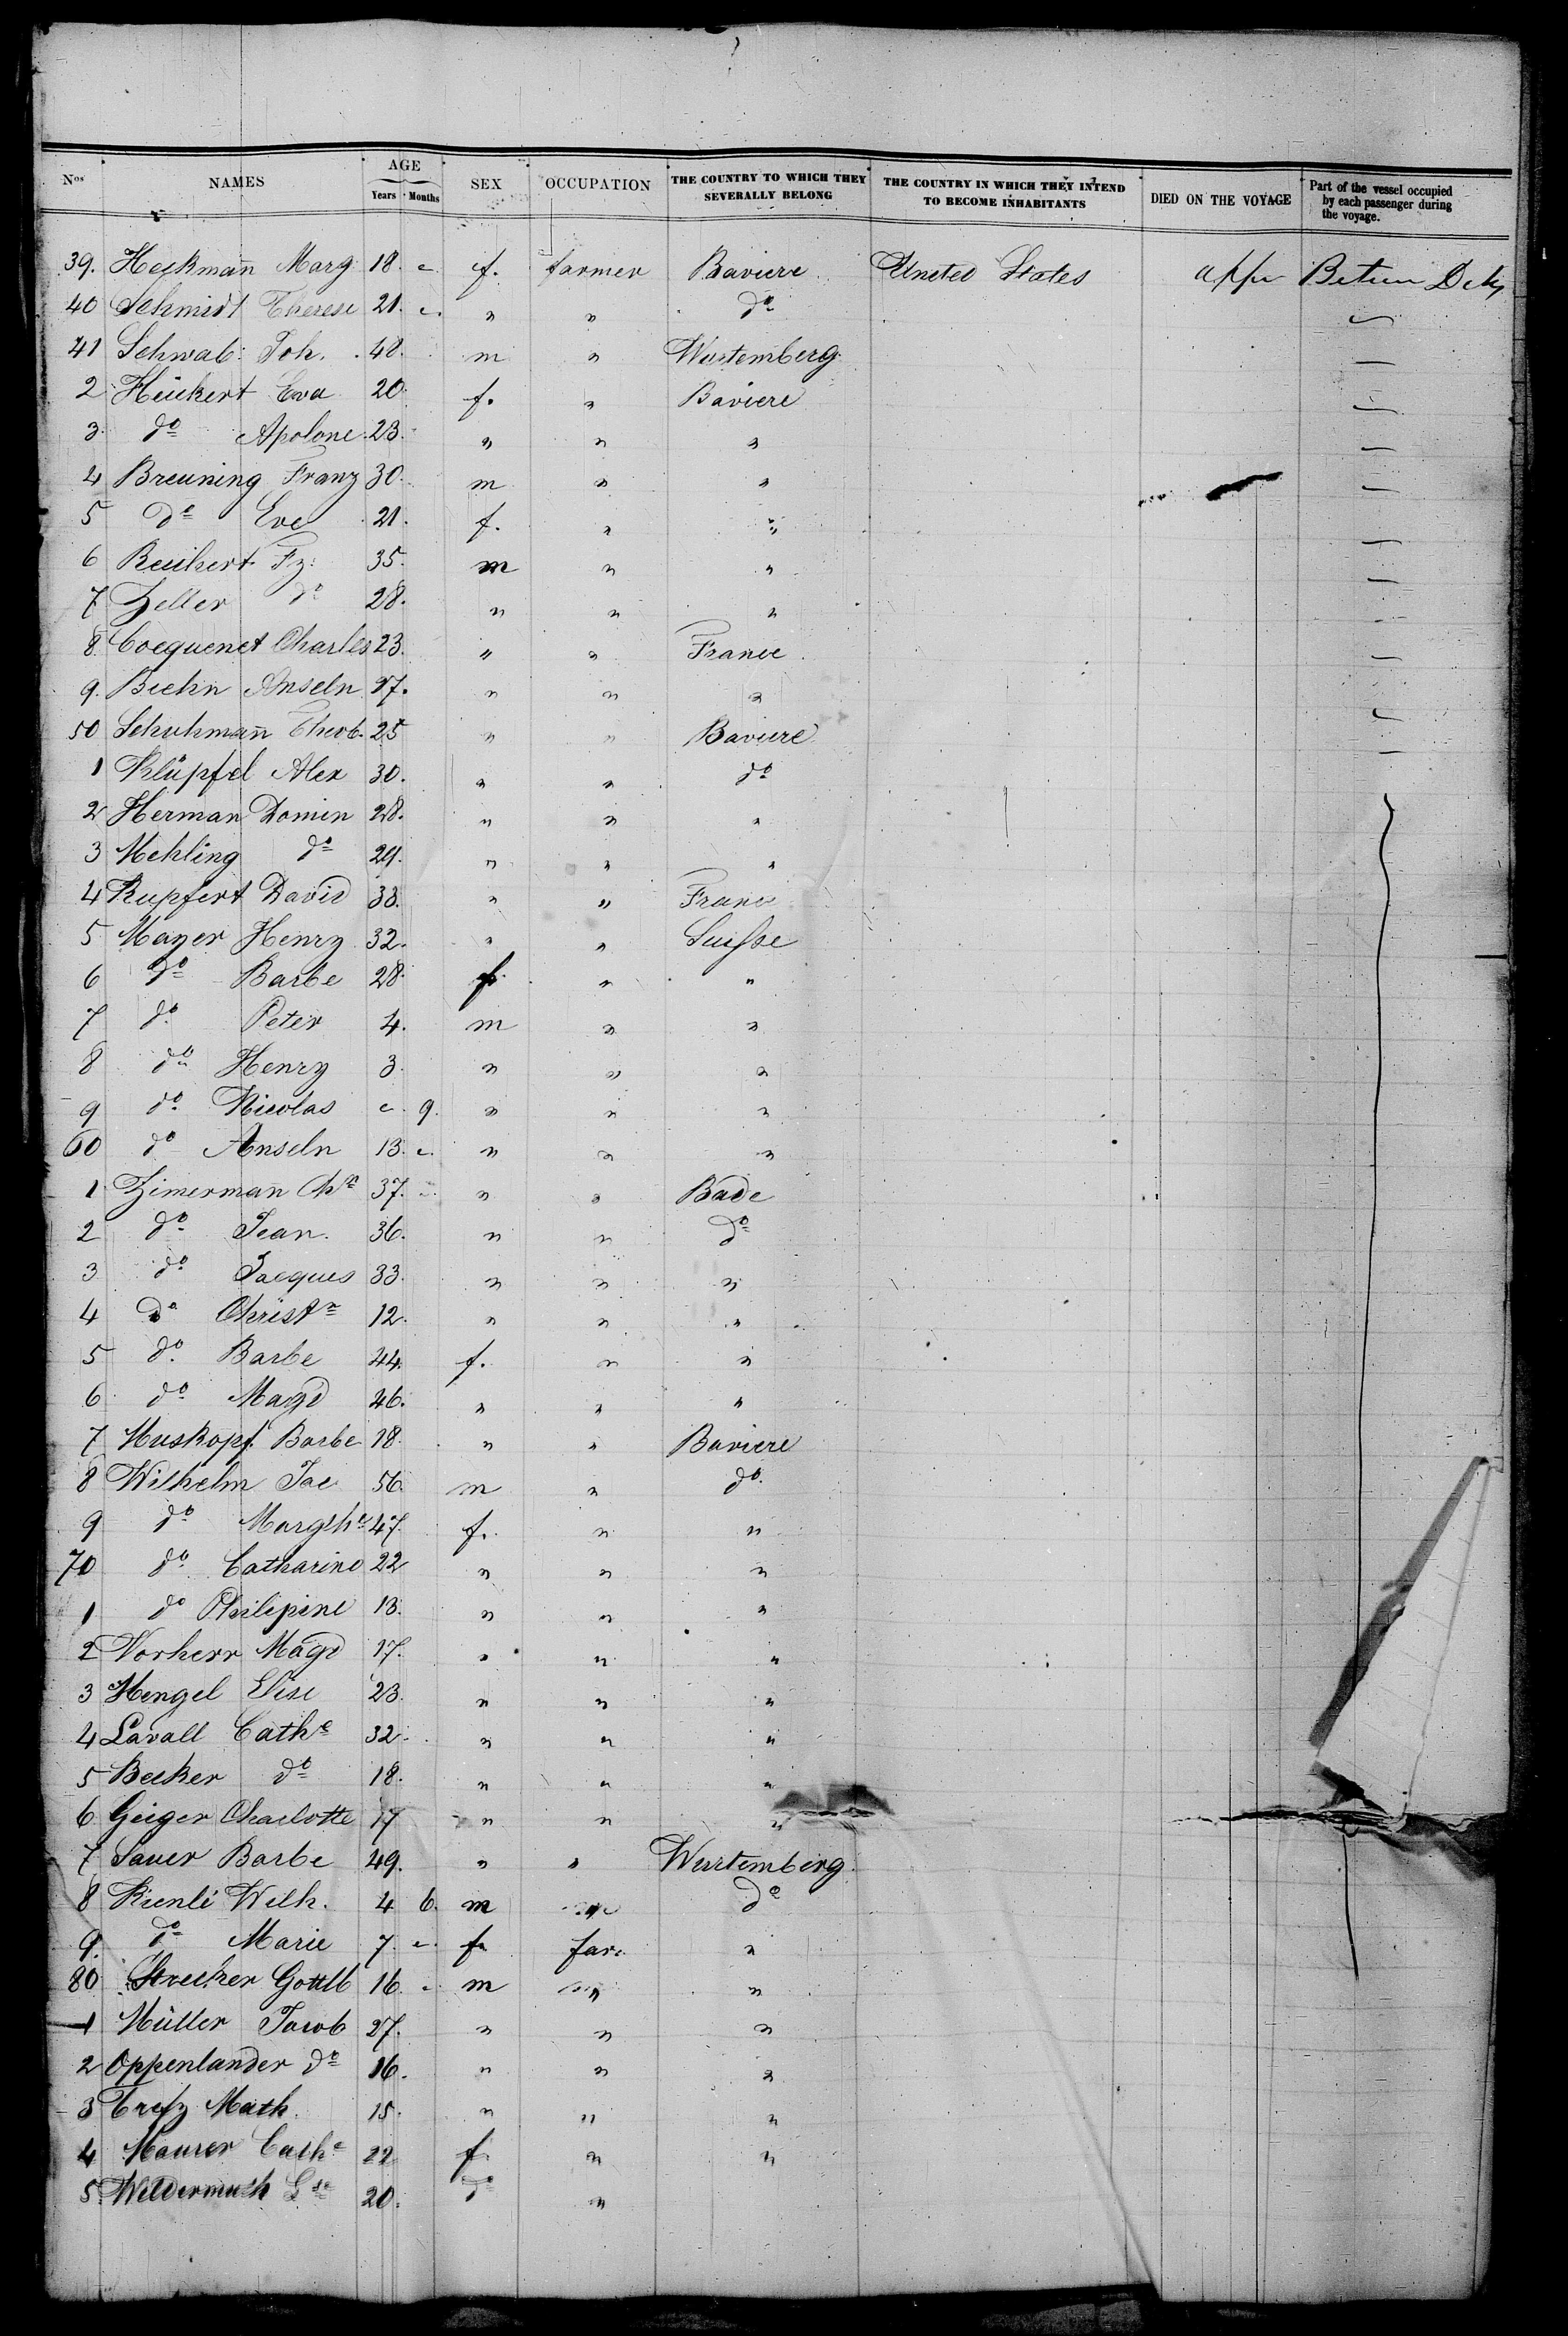 Nos NAMES AGE Years Months SEX OCCUPATION THE COUNTRY TO WHICH THEY SEVERALLY BELONG THE COUNTRY IN WHICH THEY INTEND TO BECOME INHABITANTS DIED ON THE VOYAGE Part of the vessel occupied by each passenger during the voyage.
39. Heckmañ Marg 18. f. farmer Baviere United States Betwen Deks
40 Schmidt Therese 21. " " do
41 Schwab: Joh. 48. m " Wurtemberg
2 Heickert Eva 20. f. " Baviere
3 do Apolone 23. " " "
4 Breuning Franz 30. m " "
5 do Eve 21. f. " "
6 Reichert Fz: 35. m " "
7 Zeller do 28. " " "
8 Cocquenet Charles 23. " " France
9. Biehn Anseln 27. " " "
50 Schuhmañ Theob. 25 " " Baviere
1 Klüpfel Alex 30. " " do
2 Herman Domin 28. " " "
3 Mehling do 24. " " "
4 Rupfert David 33. " " France
5 Mayer Henry 32. " " Suisse
6 do Barbe 28. f. " "
7 do Peter 4. m " "
8 do Henry 3 " " "
9 do Nicolas 9. " " "
60 do Anseln 13. " " "
1 Zimermañ Chn 37. " " Bade
2 do Jean. 36. " " do
3 do Jacques 33. " " "
4 do Christn 12. " " "
5 do Barbe 44. f. " "
6 do Magd 46. " " "
7 Huskopf Barbe 18. " " Baviere
8 Wilhelm Jac 56. m " do
9 do Margthe 47. f. " "
70 do Catharine 22 " " "
1 do Philipine 13. " " "
2 Vorherr Magd 17. " " "
3 Hengel Elise 23. " " "
4 Lavall Cathe 32. " " "
5 Becker do 18. " " "
6 Geiger Charlotte 17 " " "
7 Sauer Barbe 49. " " Wurtemberg
8 Kienli Wilh. 4 6. m " do
9. do Marie 7. f. far. "
80 Strecker Gottlb 16. m " "
1 Müller Jacob 27. " " "
2 Oppenlander do 16. " " "
3 Trefz Math. 15. " " "
4 Maurer Cathe 22 f. " "
5 Wildermuth 20. do "